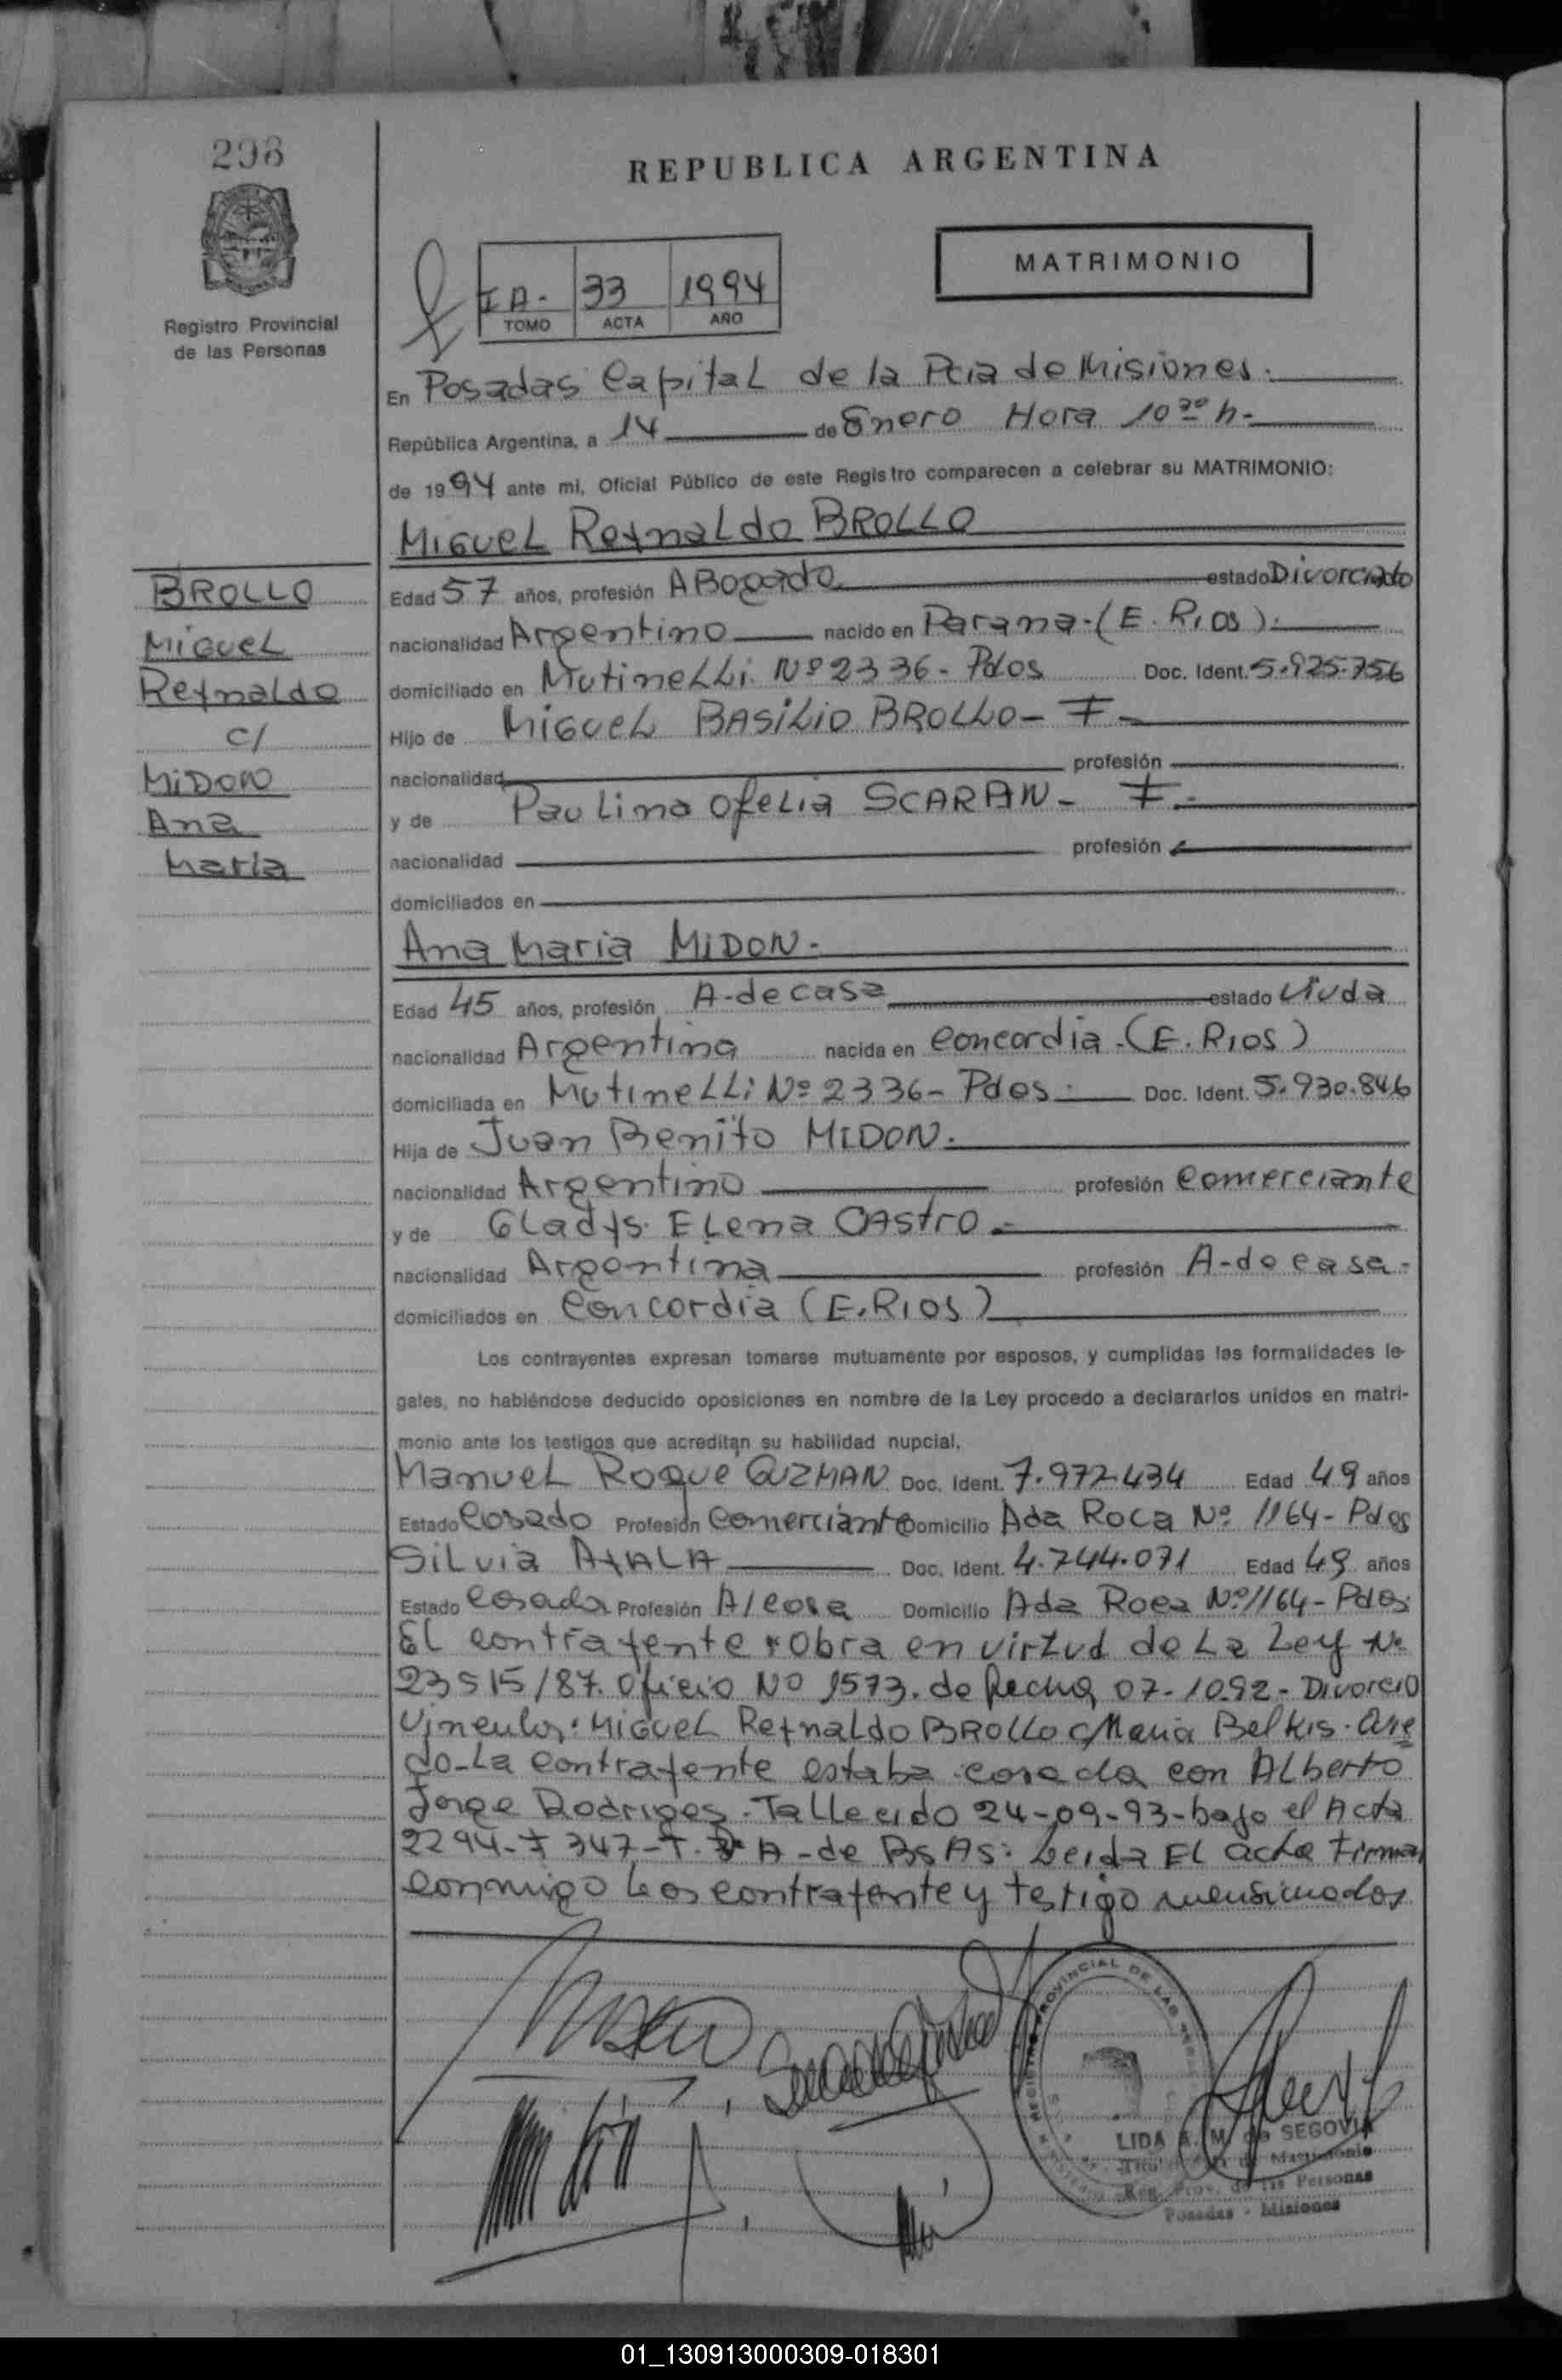 296
REPUBLICA ARGENTINA
MATRIMONIO
IA- 33 1994
TOMO ACTA AÑO
Registro Provincial
de las Personas
En Posadas Capital de la Pcia de Misiones.
República Argentina, a 14 de Enero Hora 10 h-
de 1994 ante mi, Oficial Público de este Registro comparecen a celebrar su MATRIMONIO:
MIGUEL Reynaldo BROLLO
BROLLO
Miguel
Reynaldo
c/
MIDON
Ana
Maria
Edad 57 años, profesión ABogado estado Divorciado
nacionalidad Argentino nacido en Parana-(E. Rios).
domiciliado en Mutinelli Nº 2336- Pdos Doc. Ident. 5.925.756
Hijo de Miguel BASILIO BROLLO-
nacionalidad profesión
y de Paulina Ofelia SCARAN-
nacionalidad profesión
domiciliados en
Ana Maria MIDON-
Edad 45 años, profesión A-de casa estado Viuda
nacionalidad Argentina nacida en Concordia-(E. RIOS)
domiciliada en Mutinelli Nº 2336- Pdos. Doc. Ident. 5.930.846
Hija de Juan Benito MIDON.
nacionalidad Argentino profesión Comerciante
y de Gladys Elena CAstro.
nacionalidad Argentina profesión A-de casa-
domiciliados en Concordia (E. RIOS)
Los contrayentes expresan tomarse mutuamente por esposos, y cumplidas las formalidades le-
gales, no habiéndose deducido oposiciones en nombre de la Ley procedo a declararlos unidos en matri-
monio ante los testigos que acreditan su habilidad nupcial.
Manuel Roque GUZMAN Doc. Ident. 7.972.434 Edad 49 años
Estado Casado Profesión Comerciante Domicilio Ada Roca Nº 1164- Pdos
Silvia AYALA Doc. Ident. 4.744.071 Edad 49 años
Estado Casada Profesión A/casa Domicilio Ada Roca Nº 1164- Pdos.
El contrayente obra en virtud de La Ley Nº
23515/87. Oficio Nº 1573. de fecha 07-10-92- Divorcio
Vincular: Miguel Reynaldo BROLLO c/Maria Belkis
do-La contrayente estaba casada con Alberto
Jorge Rodriges. Fallecido 24-09-93- bajo el Acta
2294- 347-T. A-de BsAs: Leida El acta Firma
conmigo Los contrayente y testigo mensionados
REGISTRO PROVINCIAL DE LAS
LIDA A. M. de SEGOVIA
Matrimonio
Reg. Prov. de las Personas
Posadas - Misiones
01_130913000309-018301